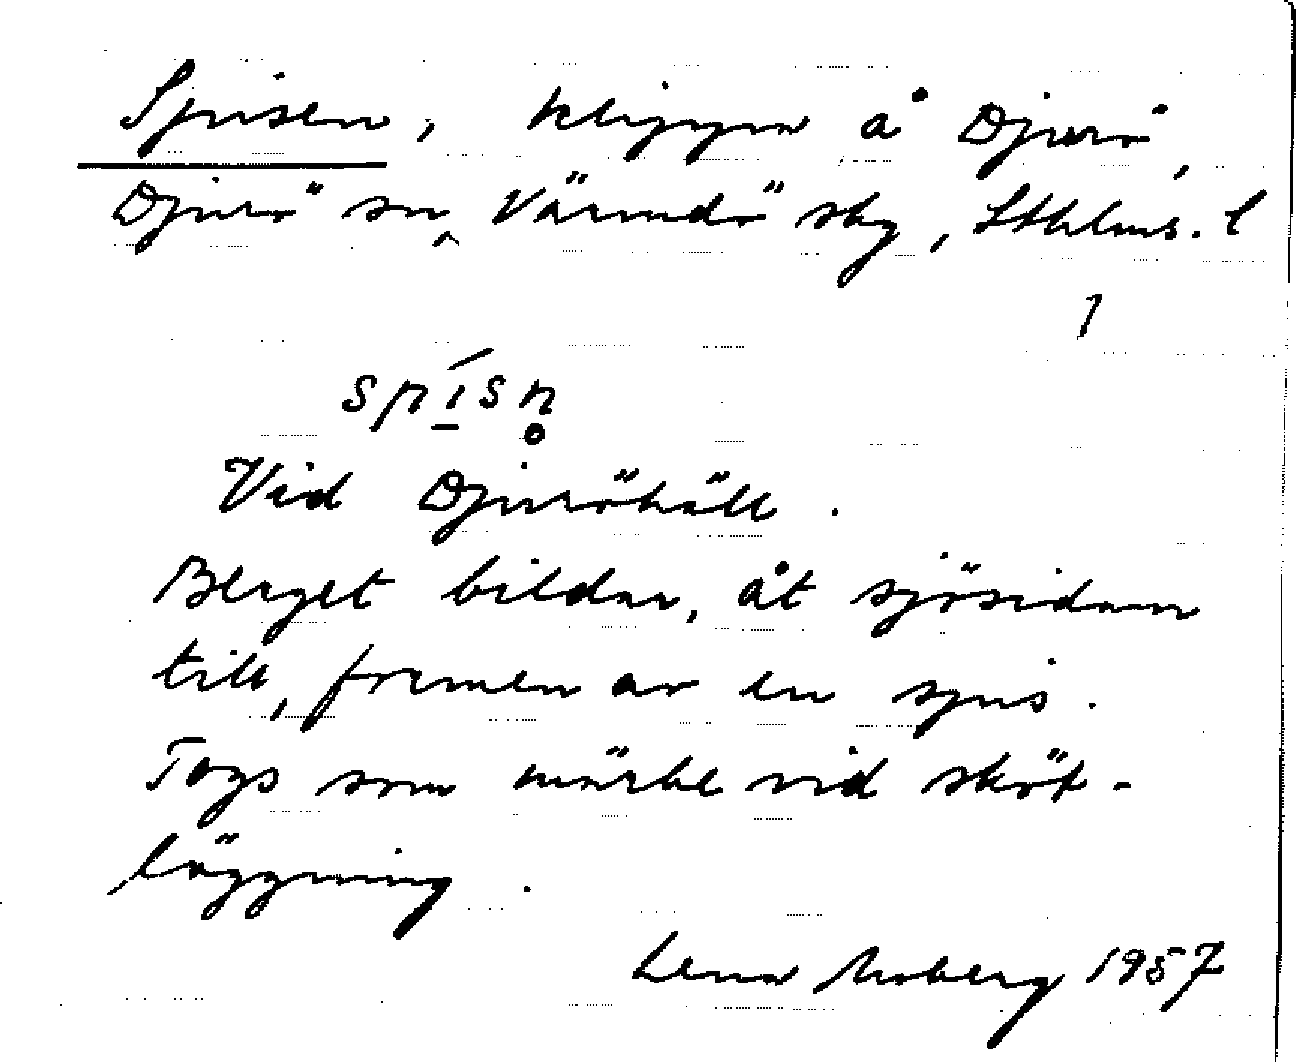 Spisen, klippa å Djurö,
Djurö sn, Värmdö skg, Sthlms. l
1
spísn̥
Vid Djuröhäll.
Berget bildar, åt sjösidan
till, formen av en spis.
Togs som märke vid sköt-
läggning.
Lena Moberg 1957